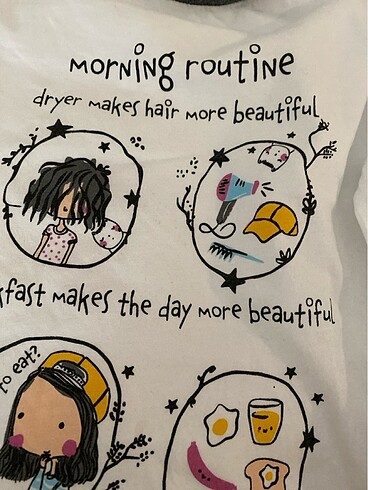 morning routine
dryer makes hair more beautiful
kfast makes the day more beautiful
to eat?